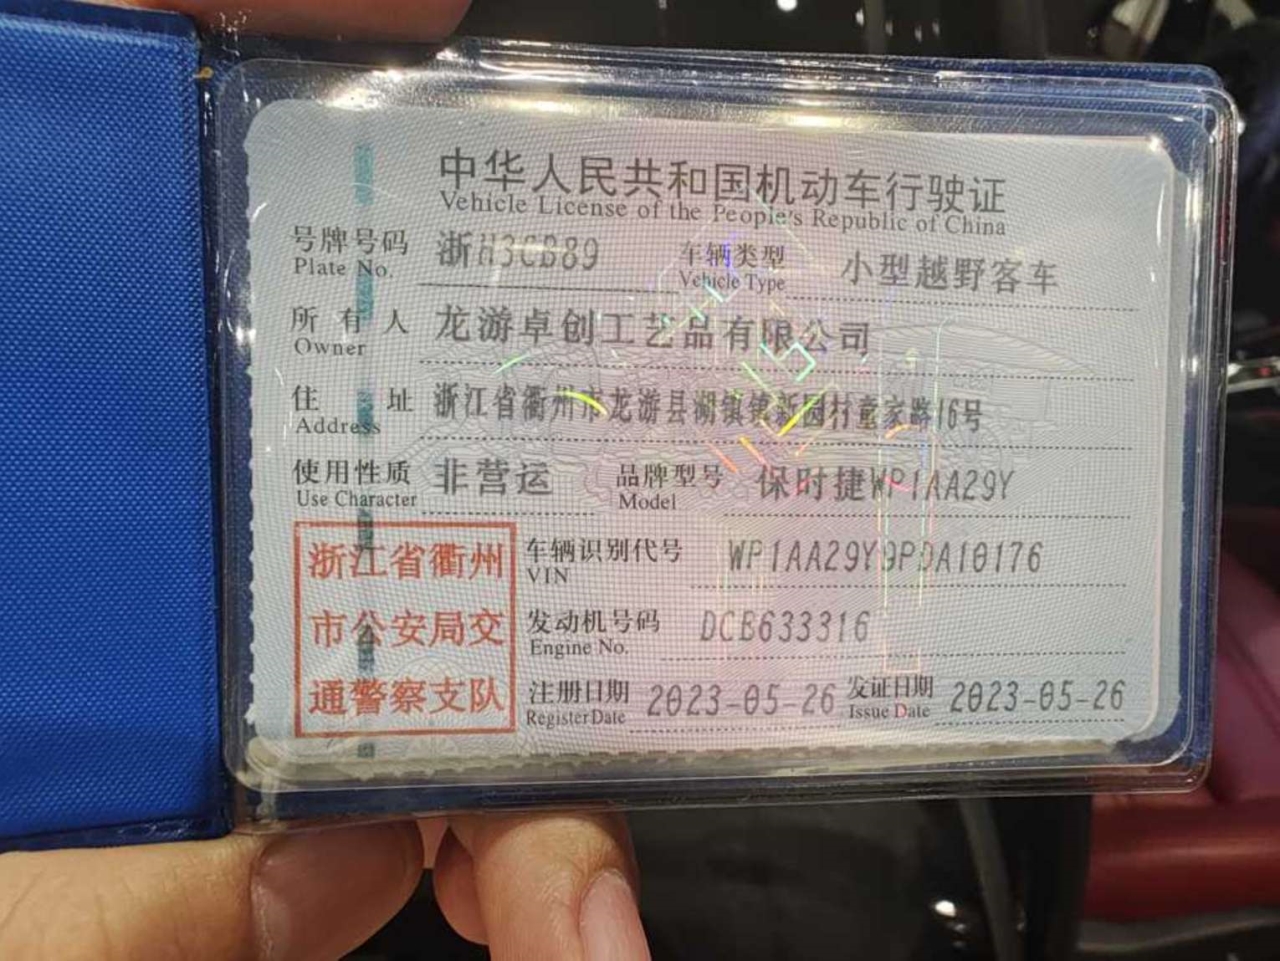 中华人民共和国机动车行驶证
Vehicle License of the People's Republic of China
号牌号码 浙H3CB89 车辆类型 小型越野客车
Plate No. Vehicle Type
所有人 龙游卓创工艺品有限公司
Owner
住址 浙江省衢州市龙游县湖镇镇新园村童家路16号
Address
使用性质 非营运 品牌型号 保时捷WP1AA29Y
Use Character Model
浙江省衢州
市公安局交
通警察支队
车辆识别代号 WP1AA29Y9PDA10176
VIN
发动机号码 DCB633316
Engine No.
注册日期 2023-05-26 发证日期 2023-05-26
Register Date Issue Date